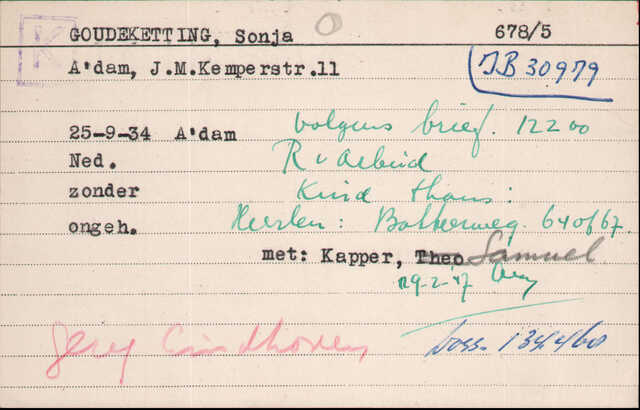 K GOUDEKETTING, Sonja O 678/5
A'dam, J.M.Kemperstr.11 JB 30979
25-9-34 A'dam volgens brief. 12200
Ned. R v Arbeid
zonder Kind thans:
ongeh. Heerlen: Bakkerweg. 64 of 67.
met: Kapper, Theo Samuel
29-2-'47
Gereg Eindhoven doss. 134460